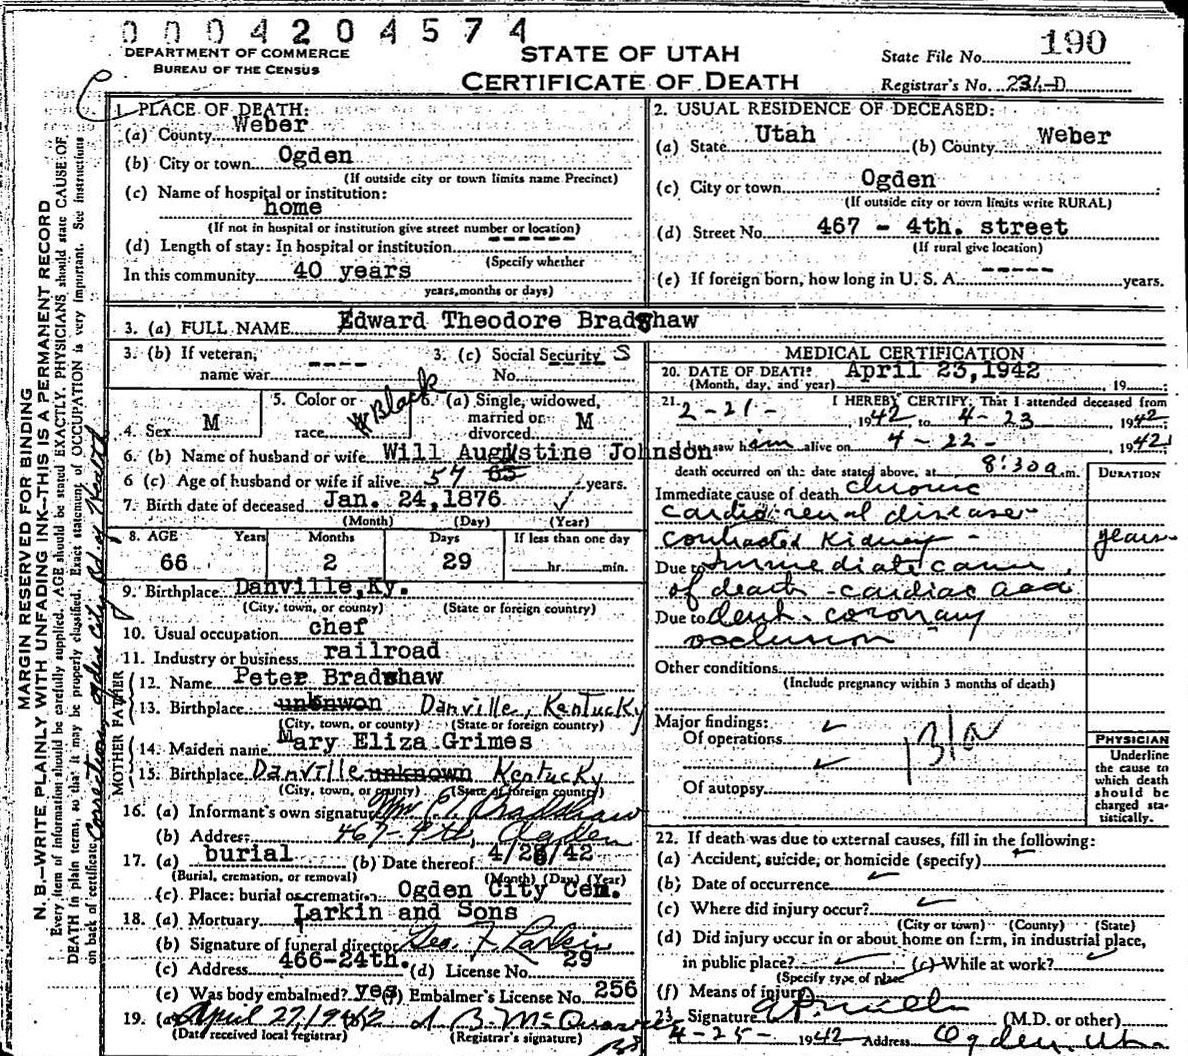 0004204574
DEPARTMENT OF COMMERCE
BUREAU OF THE CENSUS
STATE OF UTAH
CERTIFICATE OF DEATH
State File No. 190
Registrar's No. 234-D
MARGIN RESERVED FOR BINDING
N. B.—WRITE PLAINLY WITH UNFADING INK—THIS IS A PERMANENT RECORD
Every item of information should be carefully supplied. AGE should be stated EXACTLY. PHYSICIANS should state CAUSE OF
DEATH in plain terms, so that it may be properly classified. Exact statement of OCCUPATION is very important. See instructions
on back of certificate.
1. PLACE OF DEATH:
(a) County Weber
(b) City or town Ogden
(If outside city or town limits name Precinct)
(c) Name of hospital or institution:
home
(If not in hospital or institution give street number or location)
(d) Length of stay: In hospital or institution -------
(Specify whether
In this community 40 years
years, months or days)
2. USUAL RESIDENCE OF DECEASED:
(a) State Utah (b) County Weber
(c) City or town Ogden
(If outside city or town limits write RURAL)
(d) Street No. 467 - 4th. street
(If rural give location)
(e) If foreign born, how long in U. S. A. ----- years.
3. (a) FULL NAME Edward Theodore Bradshaw
3. (b) If veteran, name war ----
3. (c) Social Security No. S
4. Sex M
5. Color or race W Black
6. (a) Single, widowed, married or divorced M
6. (b) Name of husband or wife Will Augustine Johnson
6 (c) Age of husband or wife if alive 54 65 years.
7. Birth date of deceased Jan. 24, 1876
(Month) (Day) (Year)
8. AGE Years Months Days If less than one day
66 2 29 hr. min.
9. Birthplace Danville, Ky.
(City, town, or county) (State or foreign country)
10. Usual occupation chef
11. Industry or business railroad
FATHER
12. Name Peter Bradshaw
13. Birthplace unknwon Danville, Kentucky
(City, town, or county) (State or foreign country)
MOTHER
14. Maiden name Mary Eliza Grimes
15. Birthplace Danville unknown Kentucky
(City, town, or county) (State or foreign country)
16. (a) Informant's own signature Bradshaw
(b) Address 467-4th, Ogden
17. (a) burial (b) Date thereof 4/28/42
(Burial, cremation, or removal) (Month) (Day) (Year)
(c) Place: burial or cremation Ogden City Cem.
18. (a) Mortuary Larkin and Sons
(b) Signature of funeral director Geo. F Larkin
(c) Address 466-24th. (d) License No. 29
(e) Was body embalmed? yes (f) Embalmer's License No. 256
19. (a) April 27, 1942
(Date received local registrar) (Registrar's signature)
MEDICAL CERTIFICATION
20. DATE OF DEATH: April 23, 1942
(Month, day, and year) , 19
21. I HEREBY CERTIFY, That I attended deceased from
2-21-, 1942 to 4-23 1942
I last saw him alive on 4-22-, 1942
death occurred on the date stated above, at 8:30 a.m.
DURATION
Immediate cause of death chronic
cardio renal disease
contracted kidney - years
Due to Immediate cause
of death - cardiac acci
Due to dent. coronary
occlusion
Other conditions
(Include pregnancy within 3 months of death)
Major findings:
Of operations
Of autopsy
PHYSICIAN
Underline
the cause to
which death
should be
charged sta-
tistically.
22. If death was due to external causes, fill in the following:
(a) Accident, suicide, or homicide (specify)
(b) Date of occurrence
(c) Where did injury occur?
(City or town) (County) (State)
(d) Did injury occur in or about home on farm, in industrial place,
in public place? (e) While at work?
(Specify type of place)
(f) Means of injury
23. Signature (M.D. or other)
4-25- 1942 Address Ogden, Utah